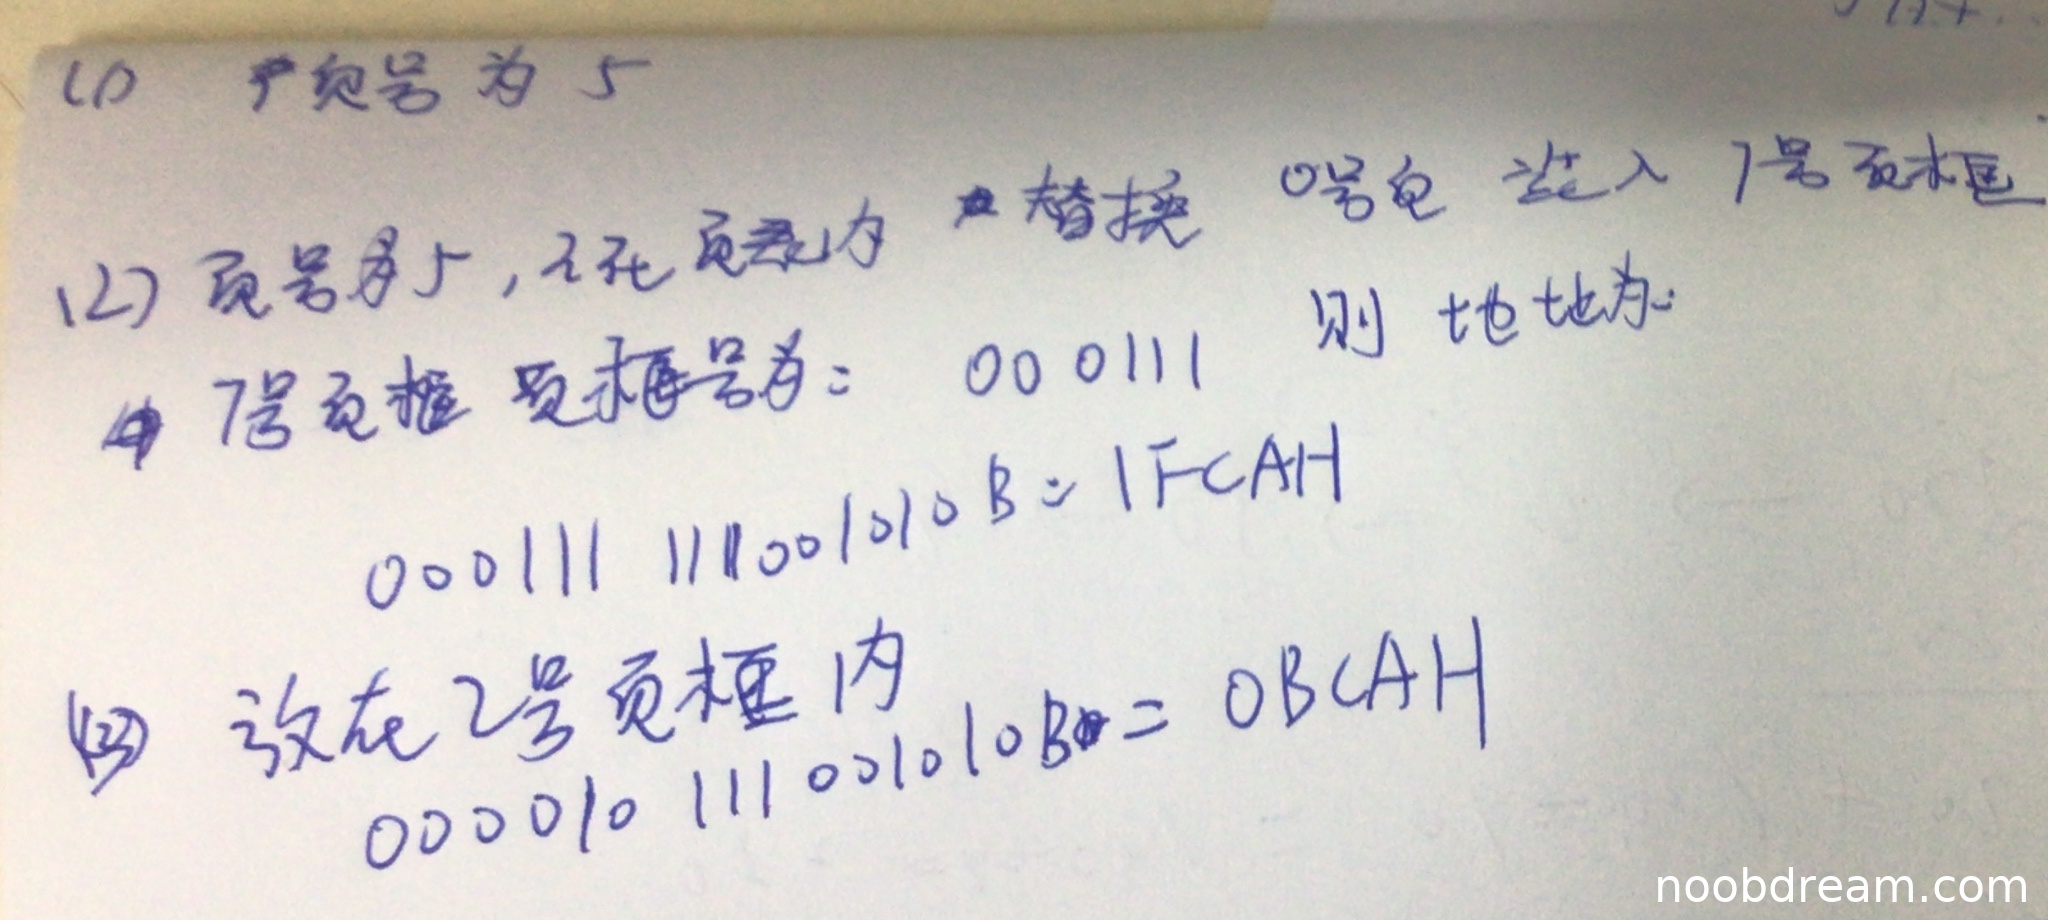 (1) 页号为 5
(2) 页号为5,不在页表内 替换 0号页 装入 7号页框
7号页框 页框号为: 000111 则 地址为:
000111 1111001010B = 1FCAH
(3) 放在2号页框内
000010 1111001010B = 0BCAH
noobdream.com